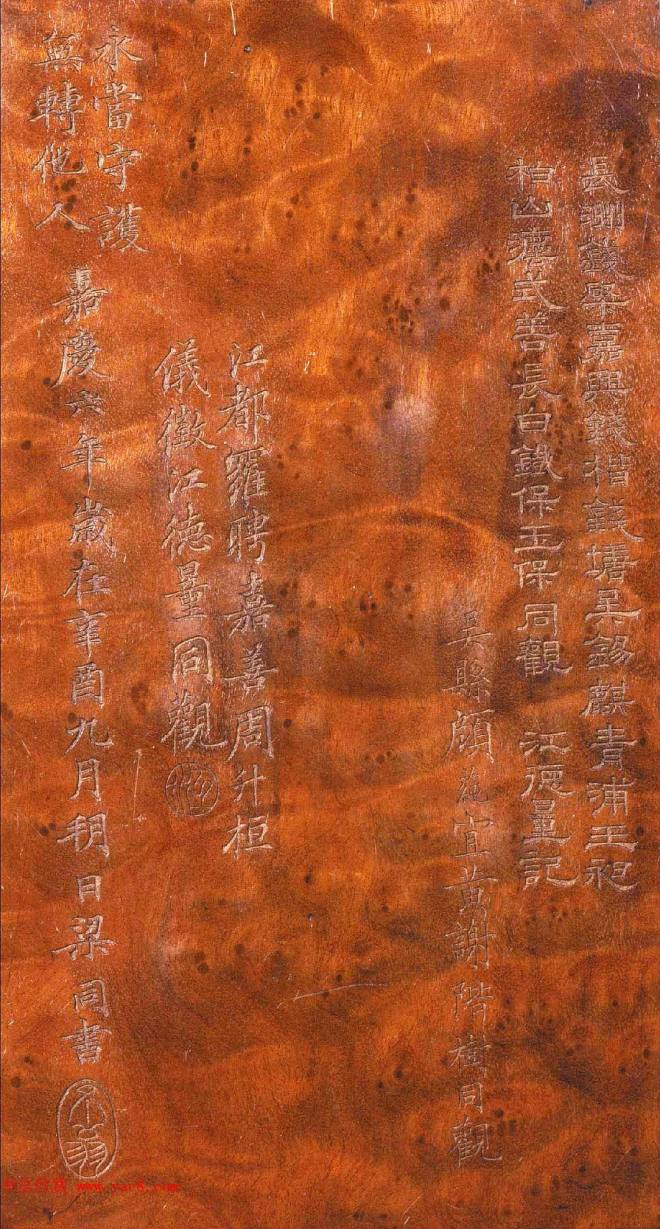 長洲錢棨嘉興錢楷錢塘吳錫麒青浦王昶
柏山法式善長白鐵保玉保同觀 江德量記
吳縣顧蒓宜黃謝階樹同觀
江都羅聘嘉善周升桓
儀徵江德量同觀
永當守護
無轉他人
嘉慶六年歲在辛酉九月朔日梁同書
不翁
www.yac8.com